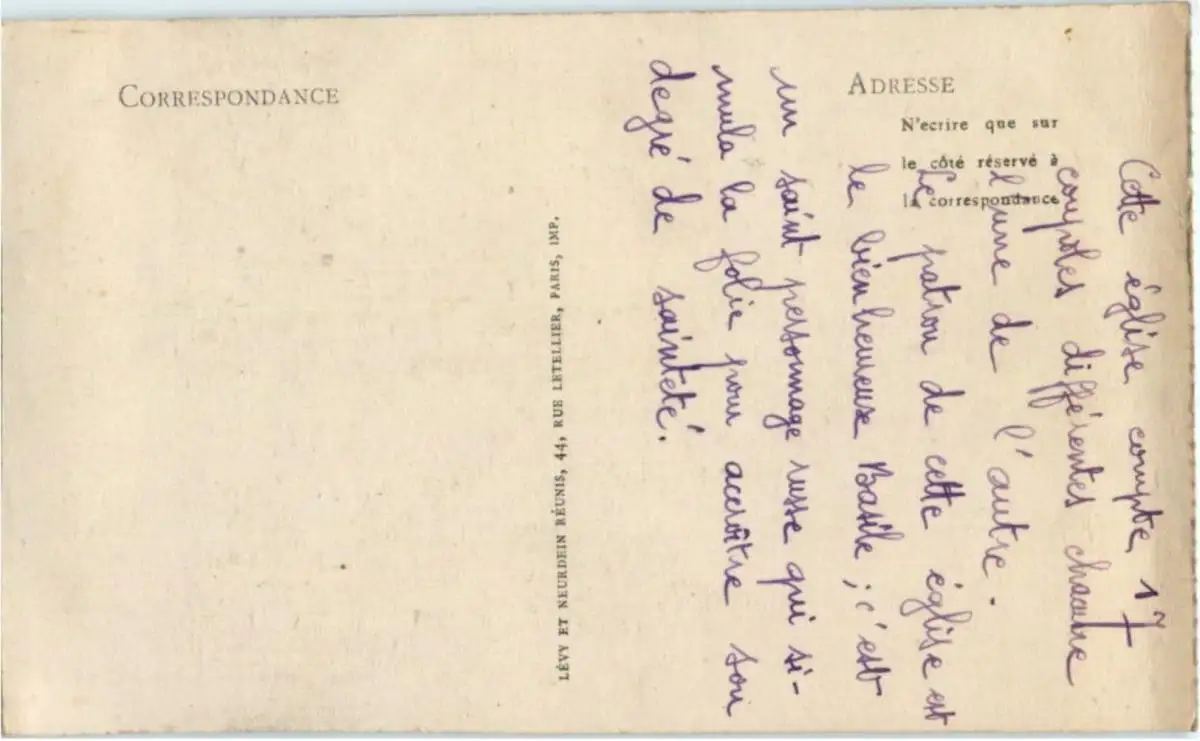 CORRESPONDANCE
ADRESSE
N'ecrire que sur
le côté réservé à
la correspondance
LÉVY ET NEURDEIN RÉUNIS, 44, RUE LETELLIER, PARIS, IMP.
Cette église compte 17
coupoles différentes chacune
l'une de l'autre.
Le patron de cette église est
le bienheureuse Basile ; c'est
un saint personnage russe qui si-
mula la folie pour accroître son
degré de sainteté.